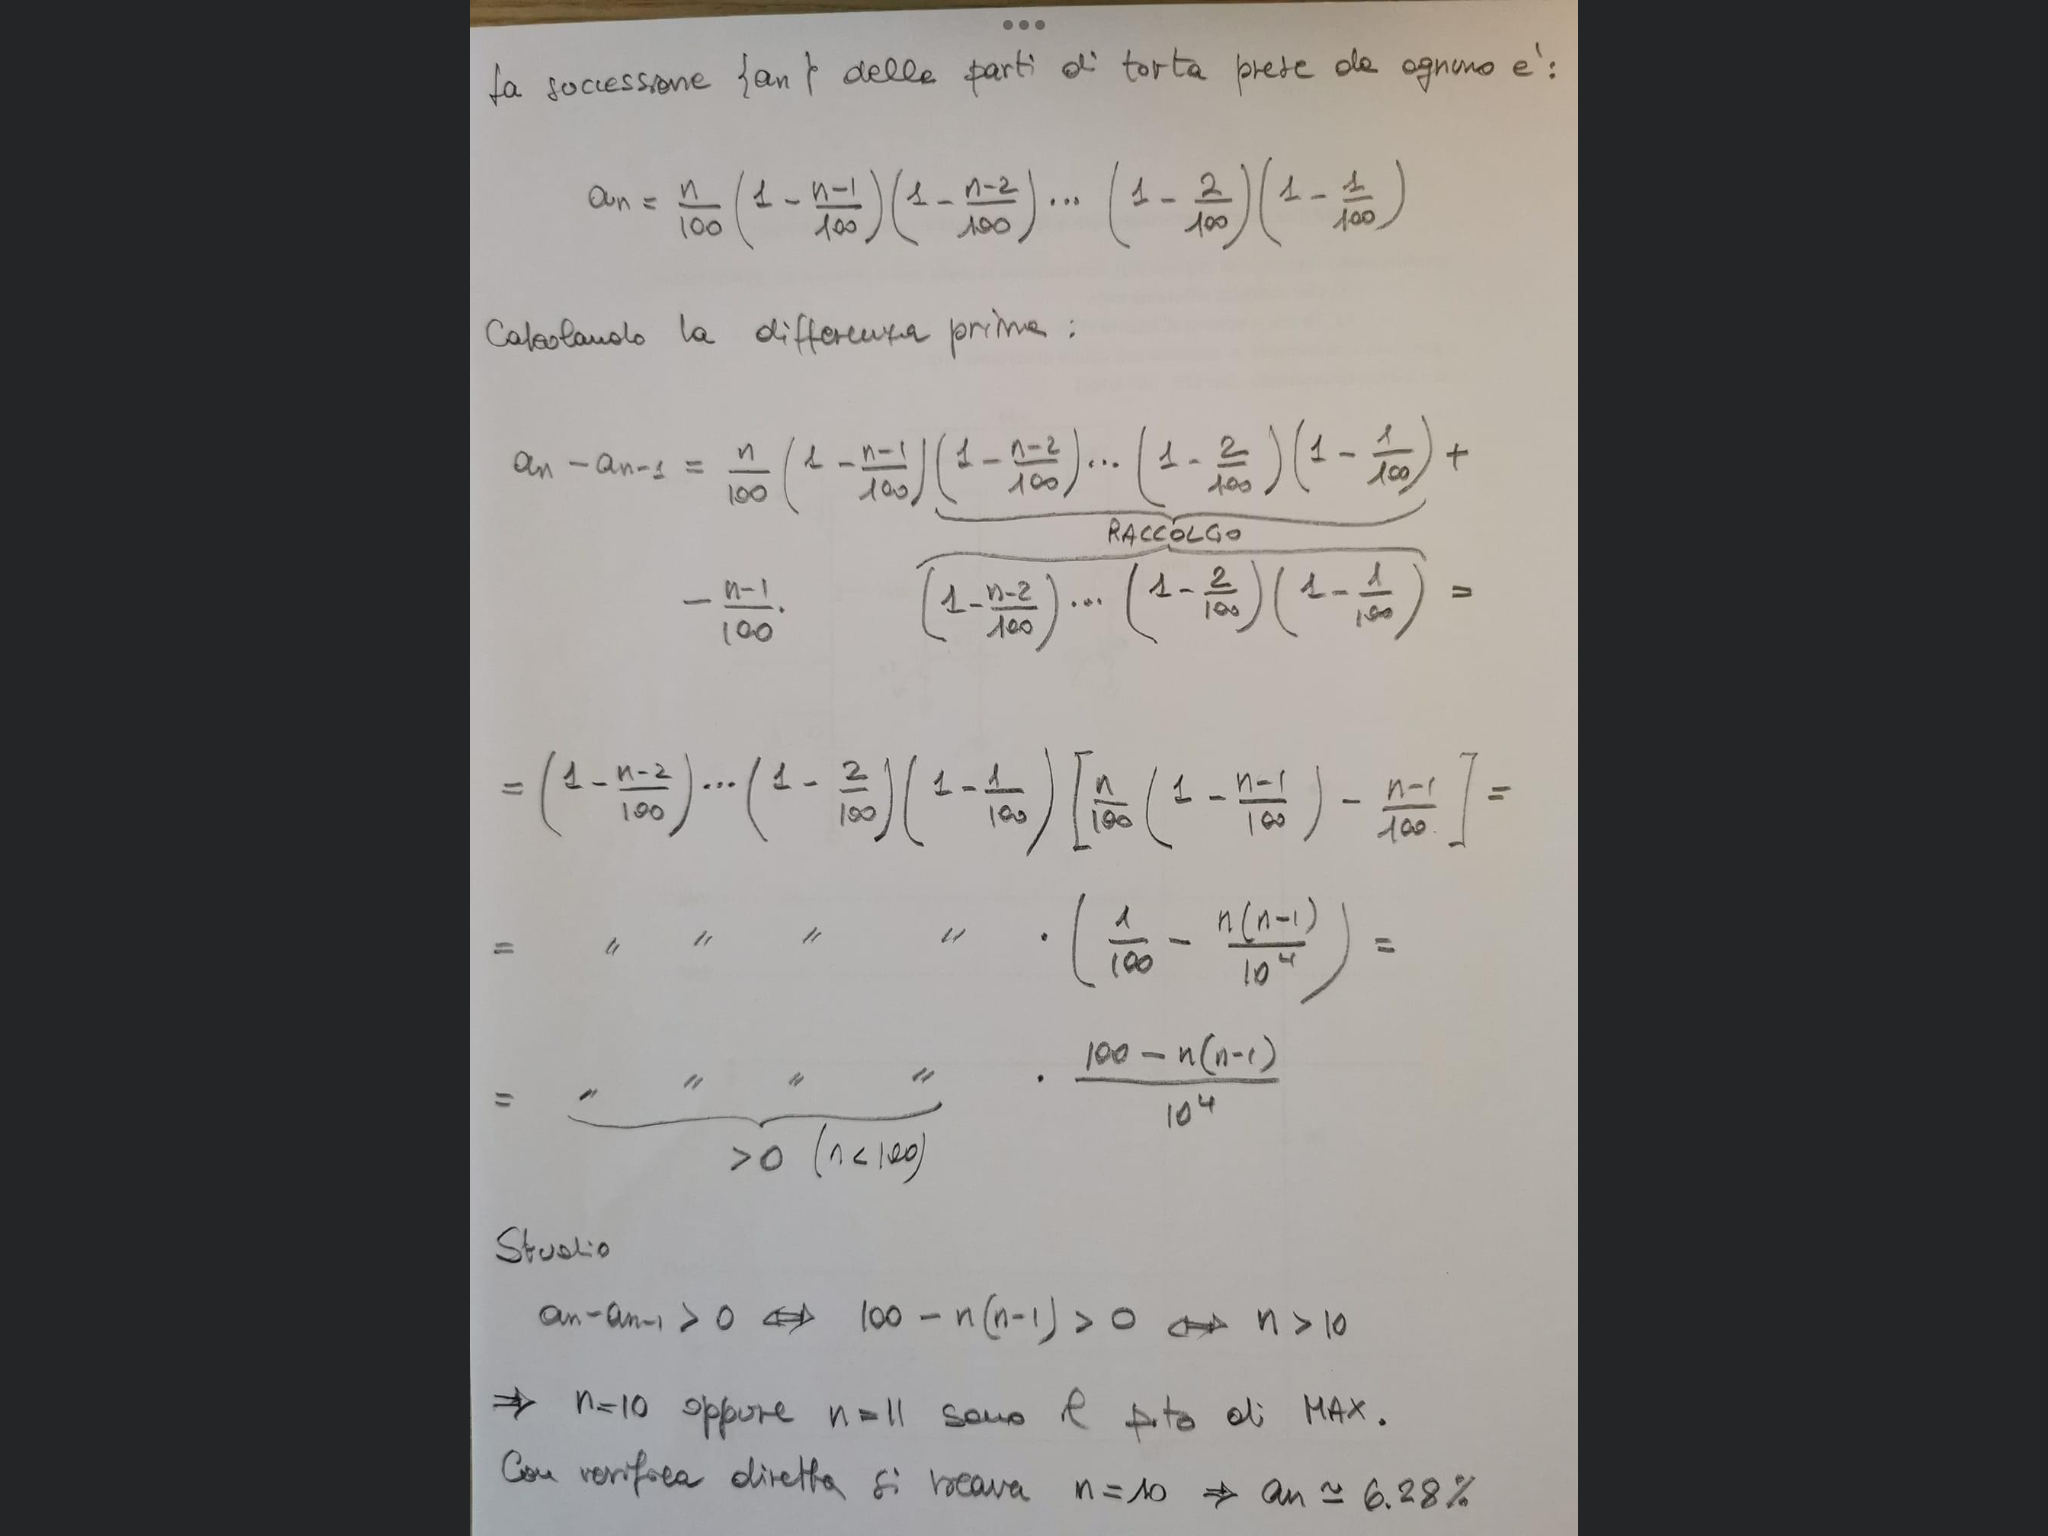 La successione {an} delle parti di torta prese da ognuno e':
an = n/100 (1 - n-1/100)(1 - n-2/100) ... (1 - 2/100)(1 - 1/100)
Calcolando la differenza prima:
an - an-1 = n/100 (1 - n-1/100)(1 - n-2/100) ... (1 - 2/100)(1 - 1/100) +
RACCOLGO
- n-1/100 · (1 - n-2/100) ... (1 - 2/100)(1 - 1/100) =
= (1 - n-2/100) ... (1 - 2/100)(1 - 1/100) [n/100 (1 - n-1/100) - n-1/100] =
= " " " " · (1/100 - n(n-1)/10⁴) =
= " " " " · 100 - n(n-1)/10⁴
>0 (n<100)
Studio
an - an-1 > 0 ⇔ 100 - n(n-1) > 0 ⇔ n > 10
⇒ n=10 oppure n=11 sono il p.to di MAX.
Con verifica diretta si ricava n=10 ⇒ an ≃ 6.28%